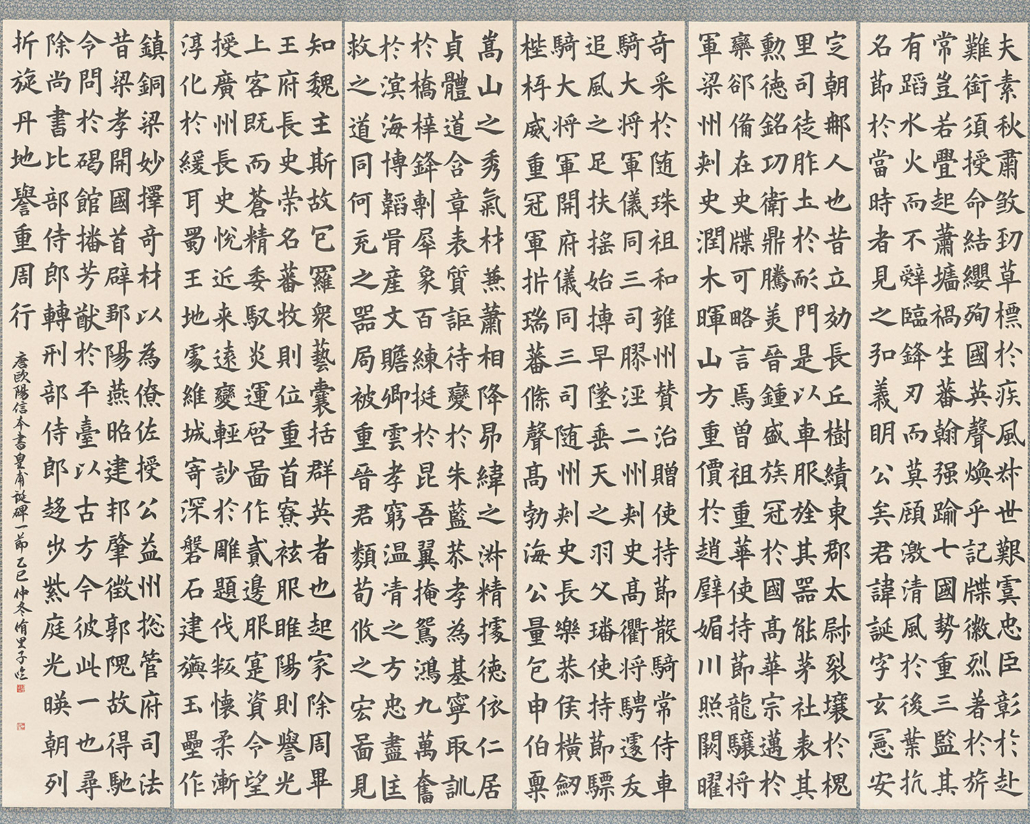 夫素秋肅煞勁草標於疾風叔世艱虞忠臣彰於赴
難銜須授命結纓殉國英聲煥乎記牒徽烈著於旂
常豈若疊起蕭墻禍生蕃翰强踰七國勢重三監其
有蹈水火而不辭臨鋒刃而莫顧激清風於後葉抗
名節於當時者見之弘義明公矣君諱誕字玄憲安
定朝那人也昔立効長丘樹績東郡太尉裂壤於槐
里司徒胙土於耏門是以車服旌其器能茅社表其
勲德銘功衛鼎騰美晉鍾盛族冠於國高華宗邁於
欒郤備在史牒可略言焉曾祖重華使持節龍驤將
軍梁州刾史潤木暉山方重價於趙璧媚川照闕曜
奇采於随珠祖和雍州贊治贈使持節散騎常侍車
騎大将軍儀同三司膠涇二州刾史高衢将騁遽夭
追風之足扶搖始搏早墜垂天之羽父璠使持節驃
騎大将軍開府儀同三司随州刾史長樂恭侯橫劒
桎梏威重冠軍折瑞蕃條聲高勃海公量包申伯稟
嵩山之秀氣材兼蕭相降昴緯之淋精據德依仁居
貞體道含章表質詎待變於朱藍恭孝為基寧取訓
於橋梓鋒剸犀象百練挺於昆吾翼掩鴛鴻九萬奮
於溟海博韜骨産文贍卿雲孝窮温清之方忠盡匡
救之道同何充之器局被重晉君類荀攸之宏啚見
知魏主斯故包羅衆藝囊括群英者也起家除周畢
王府長史榮名蕃牧則位重首寮袨服睢陽則譽光
上客既而蒼精委馭炎運啓啚作貳邊服寔資令望
授廣州長史悅近来遠變輕訬於雕題伐叛懷柔漸
淳化於緩耳蜀王地處維城寄深磐石建旟玉壘作
鎮銅梁妙擇奇材以為僚佐授公益州捴管府司法
昔梁孝開國首辟鄒陽燕昭建邦肇徵郭隗故得馳
令問於碣館播芳猷於平臺以古方今彼此一也尋
除尚書比部侍郎轉刑部侍郎趍步紫庭光暎朝列
折旋丹地譽重周行
唐歐陽信本書皇甫誕碑一節乙巳仲冬里子